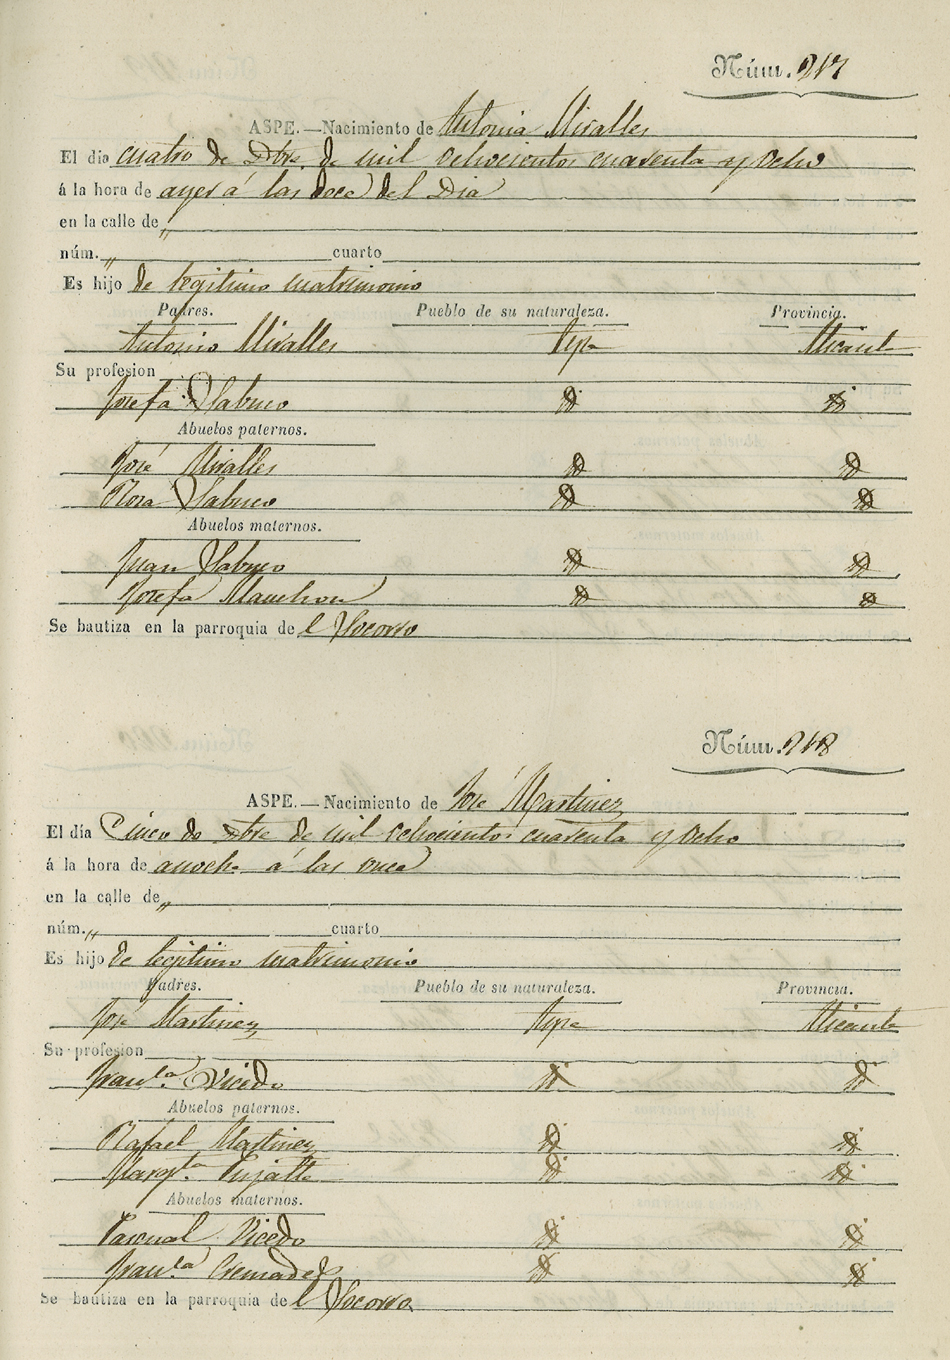 Núm. 217
ASPE.—Nacimiento de Antonia Miralles
El dia cuatro de Dbre de mil ochocientos cuarenta y ocho
á la hora de ayer á las doce del Dia
en la calle de „
núm. „ cuarto
Es hijo de legitimo matrimonio
Padres. Pueblo de su naturaleza. Provincia.
Antonio Miralles Aspe Alicante
Su profesion
Josefa Sabuco id id
Abuelos paternos.
José Miralles id id
Rosa Sabuco id id
Abuelos maternos.
Juan Sabuco id id
Josefa Manchon id id
Se bautiza en la parroquia de l Socorro
Núm. 218
ASPE.—Nacimiento de José Martinez
El día Cinco de Dbre de mil ochocientos cuarenta y ocho
á la hora de anoche á las once
en la calle de „
núm. „ cuarto
Es hijo de legitimo matrimonio
Padres. Pueblo de su naturaleza. Provincia.
José Martinez Aspe Alicante
Su profesion
Franca Vicedo id id
Abuelos paternos.
Rafael Martinez id id
Margta Pujalte id id
Abuelos maternos.
Pascual Vicedo id id
Franca Cremades id id
Se bautiza en la parroquia de l Socorro